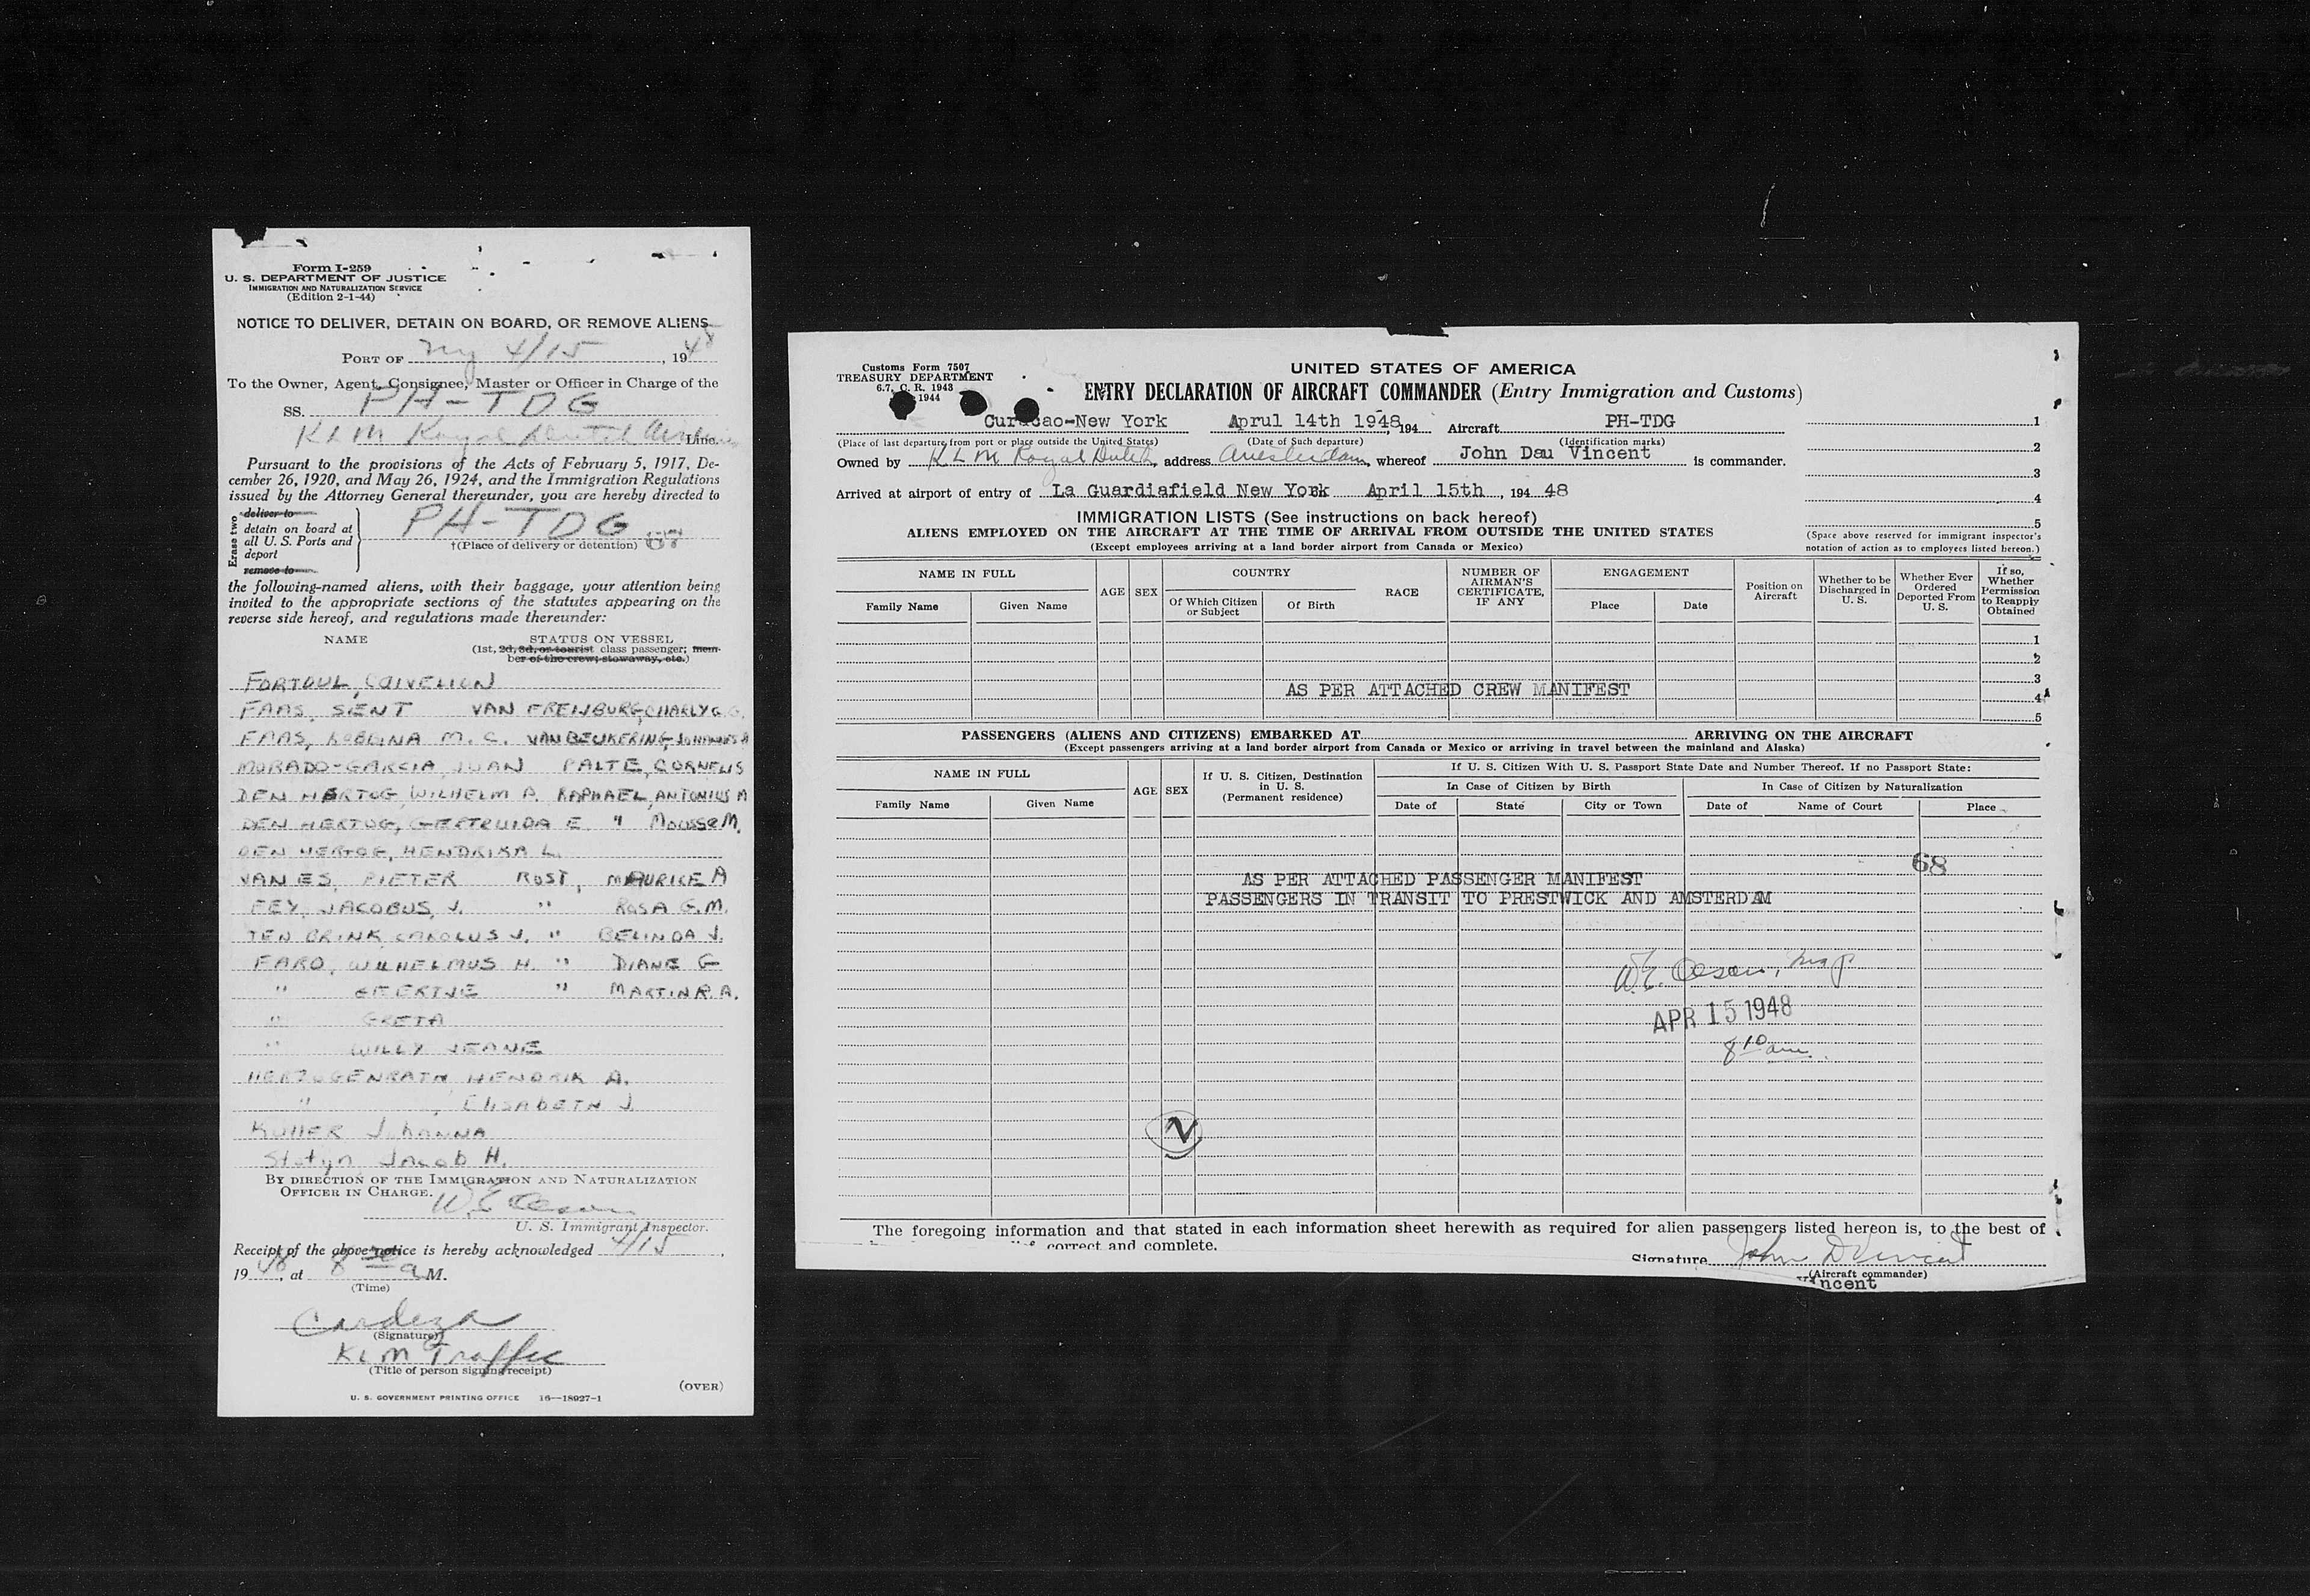 Form I-259
U. S. DEPARTMENT OF JUSTICE
IMMIGRATION AND NATURALIZATION SERVICE
(Edition 2-1-44)
NOTICE TO DELIVER, DETAIN ON BOARD, OR REMOVE ALIENS
PORT OF NY 4/15, 1948
To the Owner, Agent, Consignee, Master or Officer in Charge of the
SS. PH-TDG
KLM Royal Dutch Airlines Line.
Pursuant to the provisions of the Acts of February 5, 1917, De-
cember 26, 1920, and May 26, 1924, and the Immigration Regulations
issued by the Attorney General thereunder, you are hereby directed to
Erase two
deliver to
detain on board at
all U. S. Ports and
deport
remove to
PH-TDG
†(Place of delivery or detention) 67
the following-named aliens, with their baggage, your attention being
invited to the appropriate sections of the statutes appearing on the
reverse side hereof, and regulations made thereunder:
NAME STATUS ON VESSEL
(1st, 2d, 3d, or tourist class passenger; mem-
ber of the crew; stowaway, etc.)
FORTOUL,
FAAS, SIENT VAN FREIJBURG, CHARLY G.
FAAS, ROBLINA M. C. VAN BEUKERING, JOHANNES A
MORADO-GARCIA, JUAN PALTE, CORNELIS
DEN HERTOG, WILHELM A. RAPHAEL, ANTONIUS M
DEN HERTOG, GERTRUIDA E. " M.
DEN HERTOG, HENDRIKA L.
VAN ES, PIETER ROST, MAURICE A
FEY, JACOBUS, J. " ROSA G.M.
TEN BRINK, CAROLUS J. " BELINDA J.
FARO, WILHELMUS H. " DIANE G
" GEERTJE " MARTIN R. A.
" GRETA
" WILLY JEANE
HERZOGENRATH HENDRIK A.
" , ELISABETH J.
KULLER JOHANNA
Statyn, Jacob H.
BY DIRECTION OF THE IMMIGRATION AND NATURALIZATION
OFFICER IN CHARGE.
W. E. Olesen
U. S. Immigrant Inspector.
Receipt of the above notice is hereby acknowledged 4/15,
1948, at 8 a M.
(Time)
Cardeza
(Signature)
KLM Traffic
(Title of person signing receipt)
(OVER)
U. S. GOVERNMENT PRINTING OFFICE 16—18927-1
Customs Form 7507
TREASURY DEPARTMENT
6.7, C. R. 1943
1944
UNITED STATES OF AMERICA
ENTRY DECLARATION OF AIRCRAFT COMMANDER (Entry Immigration and Customs)
Curacao-New York Aprul 14th 1948, 194 Aircraft PH-TDG
(Place of last departure from port or place outside the United States) (Date of Such departure) (Identification marks)
Owned by KLM Royal Dutch, address Amsterdam, whereof John Dau Vincent is commander.
Arrived at airport of entry of La Guardiafield New York April 15th, 194 48
1
2
3
4
5
(Space above reserved for immigrant inspector's
notation of action as to employees listed hereon.)
IMMIGRATION LISTS (See instructions on back hereof)
ALIENS EMPLOYED ON THE AIRCRAFT AT THE TIME OF ARRIVAL FROM OUTSIDE THE UNITED STATES
(Except employees arriving at a land border airport from Canada or Mexico)
NAME IN FULL
Family Name Given Name
AGE SEX
COUNTRY
Of Which Citizen or Subject Of Birth
RACE
NUMBER OF AIRMAN'S CERTIFICATE, IF ANY
ENGAGEMENT
Place Date
Position on Aircraft
Whether to be Discharged in U. S.
Whether Ever Ordered Deported From U. S.
If so, Whether Permission to Reapply Obtained
1
2
3
AS PER ATTACHED CREW MANIFEST
4
5
PASSENGERS (ALIENS AND CITIZENS) EMBARKED AT ARRIVING ON THE AIRCRAFT
(Except passengers arriving at a land border airport from Canada or Mexico or arriving in travel between the mainland and Alaska)
NAME IN FULL
Family Name Given Name
AGE SEX
If U. S. Citizen, Destination in U. S. (Permanent residence)
If U. S. Citizen With U. S. Passport State Date and Number Thereof. If no Passport State:
In Case of Citizen by Birth In Case of Citizen by Naturalization
Date of State City or Town Date of Name of Court Place
68
AS PER ATTACHED PASSENGER MANIFEST
PASSENGERS IN TRANSIT TO PRESTWICK AND AMSTERDAM
W. E. Olesen, Insp
APR 15 1948
8 10 am.
The foregoing information and that stated in each information sheet herewith as required for alien passengers listed hereon is, to the best of
correct and complete.
Signature John D Vincent
(Aircraft commander)
Vincent